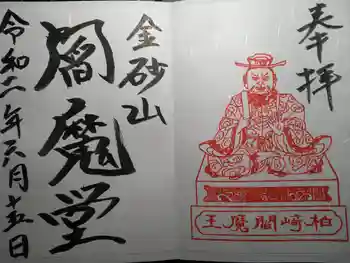 奉拝
王魔閻崎柏
金砂山
閻魔堂
令和二年六月十五日